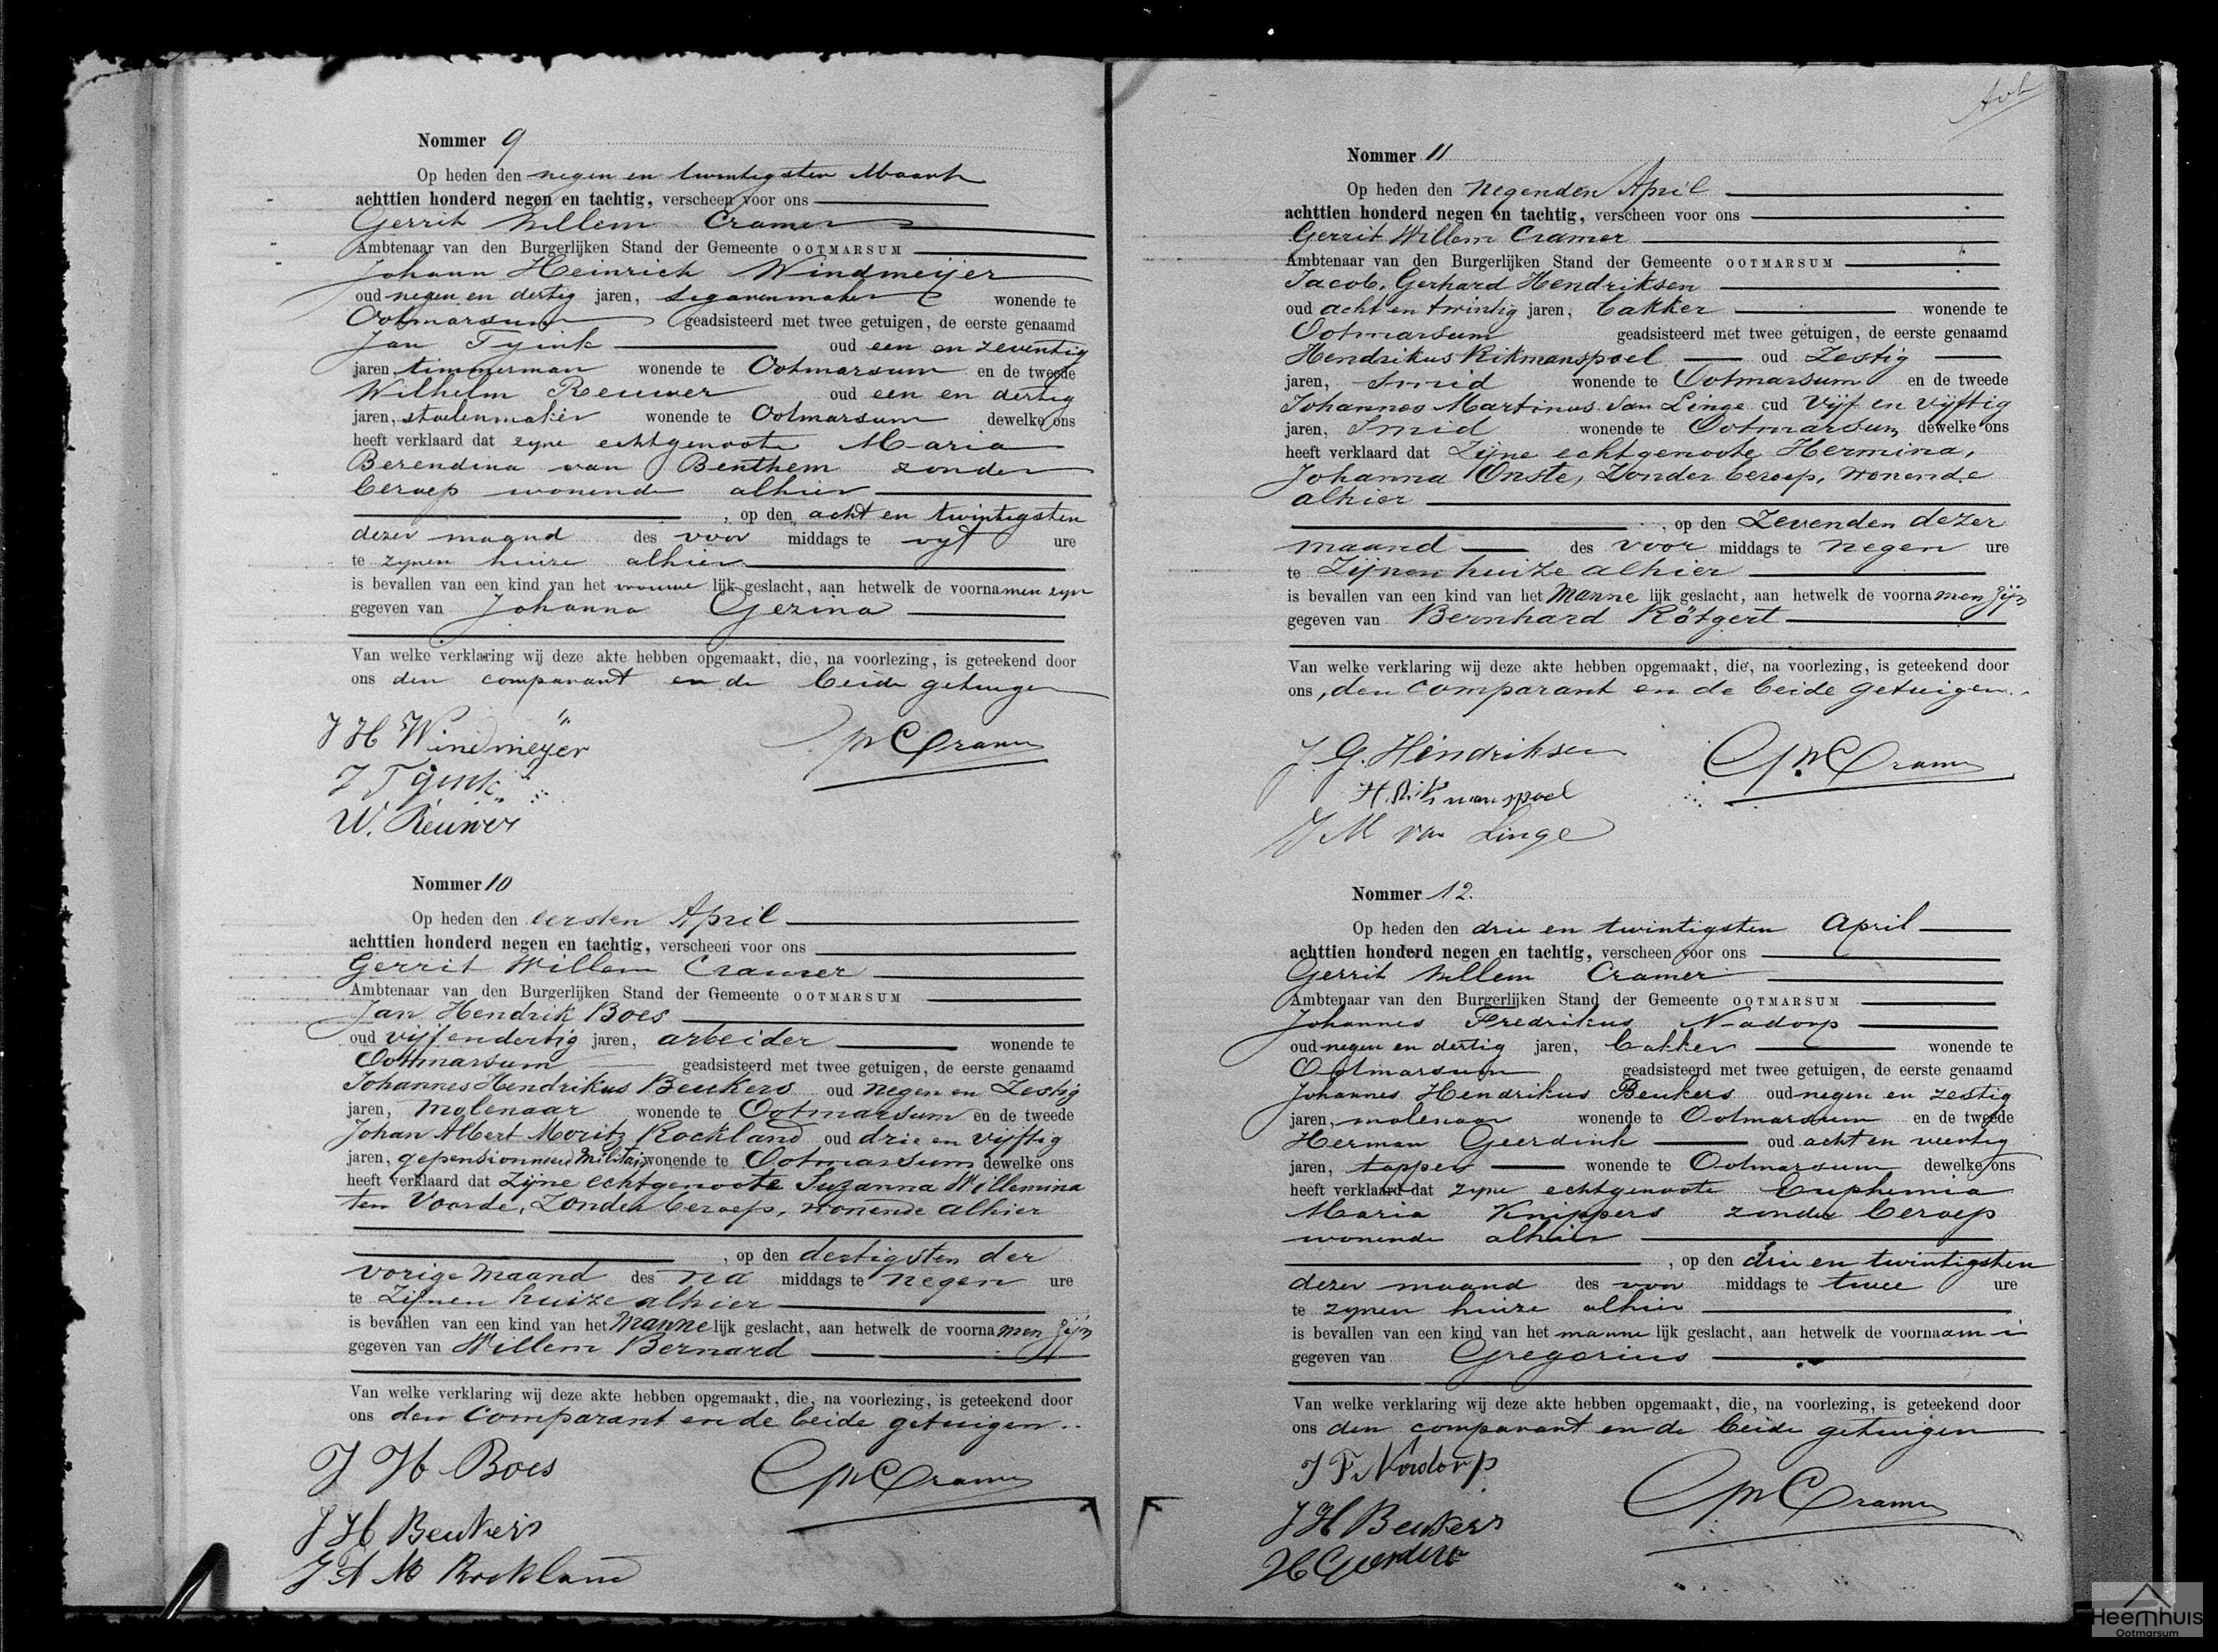 Nommer 9
Op heden den negen en twintigsten Maart
achttien honderd negen en tachtig, verscheen voor ons
Gerrit Willem Cramer
Ambtenaar van den Burgerlijken Stand der Gemeente OOTMARSUM
Johann Heinrich Windmeijer
oud negen en dertig jaren, sigarenmaker wonende te
Ootmarsum geadsisteerd met twee getuigen, de eerste genaamd
Jan Tyink oud een en zeventig
jaren timmerman wonende te Ootmarsum en de tweede
Wilhelm Reuwer oud een en dertig
jaren, stoelenmaker wonende te Ootmarsum dewelke ons
heeft verklaard dat zyne echtgenoote Maria
Berendina van Benthem zonder
beroep wonende alhier
, op den acht en twintigsten
dezer maand des voor middags te vyf ure
te zynen huize alhier
is bevallen van een kind van het vrouwe lijk geslacht, aan hetwelk de voornamen zyn
gegeven van Johanna Gezina
Van welke verklaring wij deze akte hebben opgemaakt, die, na voorlezing, is geteekend door
ons den comparant en de beide getuigen
J H Windmeyer
GWCramer
J Tyink
W. Reuwer
Nommer 10
Op heden den eersten April
achttien honderd negen en tachtig, verscheen voor ons
Gerrit Willem Cramer
Ambtenaar van den Burgerlijken Stand der Gemeente OOTMARSUM
Jan Hendrik Boes
oud vijf en dertig jaren, arbeider wonende te
Ootmarsum geadsisteerd met twee getuigen, de eerste genaamd
Johannes Hendrikus Beukers oud negen en Zestig
jaren, molenaar wonende te Ootmarsum en de tweede
Johan Albert Moritz Rockland oud drie en vijftig
jaren, gepensionneerd Militair wonende te Ootmarsum dewelke ons
heeft verklaard dat Zijne echtgenoote Suzanna Willemina
ten Voorde, Zonder beroep, wonende alhier
, op den dertigsten der
vorige maand des na middags te negen ure
te Zijnen huize alhier
is bevallen van een kind van het Manne lijk geslacht, aan hetwelk de voornamen Zijn
gegeven van Willem Bernard
Van welke verklaring wij deze akte hebben opgemaakt, die, na voorlezing, is geteekend door
ons den comparant en de beide getuigen.
J H Boes
GWCramer
J H Beukers
J A M Rockland
Nommer 11
Op heden den negenden April
achttien honderd negen en tachtig, verscheen voor ons
Gerrit Willem Cramer
Ambtenaar van den Burgerlijken Stand der Gemeente OOTMARSUM
Jacob, Gerhard Hendriksen
oud acht en twintig jaren, bakker wonende te
Ootmarsum geadsisteerd met twee getuigen, de eerste genaamd
Hendrikus Rikmanspoel oud Zestig
jaren, Smid wonende te Ootmarsum en de tweede
Johannes Martinus van Linge oud Vijf en Vijftig
jaren, Smid wonende te Ootmarsum, dewelke ons
heeft verklaard dat Zijne echtgenoote Hermina,
Johanna Onste, Zonder beroep, wonende
alhier
, op den Zevenden dezer
maand des voor middags te negen ure
te Zijnen huize alhier
is bevallen van een kind van het Manne lijk geslacht, aan hetwelk de voornamen Zijn
gegeven van Bernhard Rötgert
Van welke verklaring wij deze akte hebben opgemaakt, die, na voorlezing, is geteekend door
ons, den comparant en de beide getuigen.
J. G. Hendriksen
GWCramer
H. Rikmanspoel
J M van Linge
Nommer 12.
Op heden den drie en twintigsten April
achttien honderd negen en tachtig, verscheen voor ons
Gerrit Willem Cramer
Ambtenaar van den Burgerlijken Stand der Gemeente OOTMARSUM
Johannes Fredrikus Nadorp
oud negen en dertig jaren, bakker wonende te
Ootmarsum geadsisteerd met twee getuigen, de eerste genaamd
Johannes Hendrikus Beukers oud negen en zestig
jaren, molenaar wonende te Ootmarsum en de tweede
Herman Geerdink oud acht en veertig
jaren, tapper wonende te Ootmarsum dewelke ons
heeft verklaard dat zyne echtgenoote Euphemia
Maria Knippers zonder beroep
wonende alhier
, op den drie en twintigsten
dezer maand des voor middags te twee ure
te zynen huize alhier
is bevallen van een kind van het manne lijk geslacht, aan hetwelk de voornaam i
gegeven van Gregorius
Van welke verklaring wij deze akte hebben opgemaakt, die, na voorlezing, is geteekend door
ons den comparant en de beide getuigen
J F Nadorp
GWCramer
J H Beukers
H Geerdink
Heemhuis
Ootmarsum